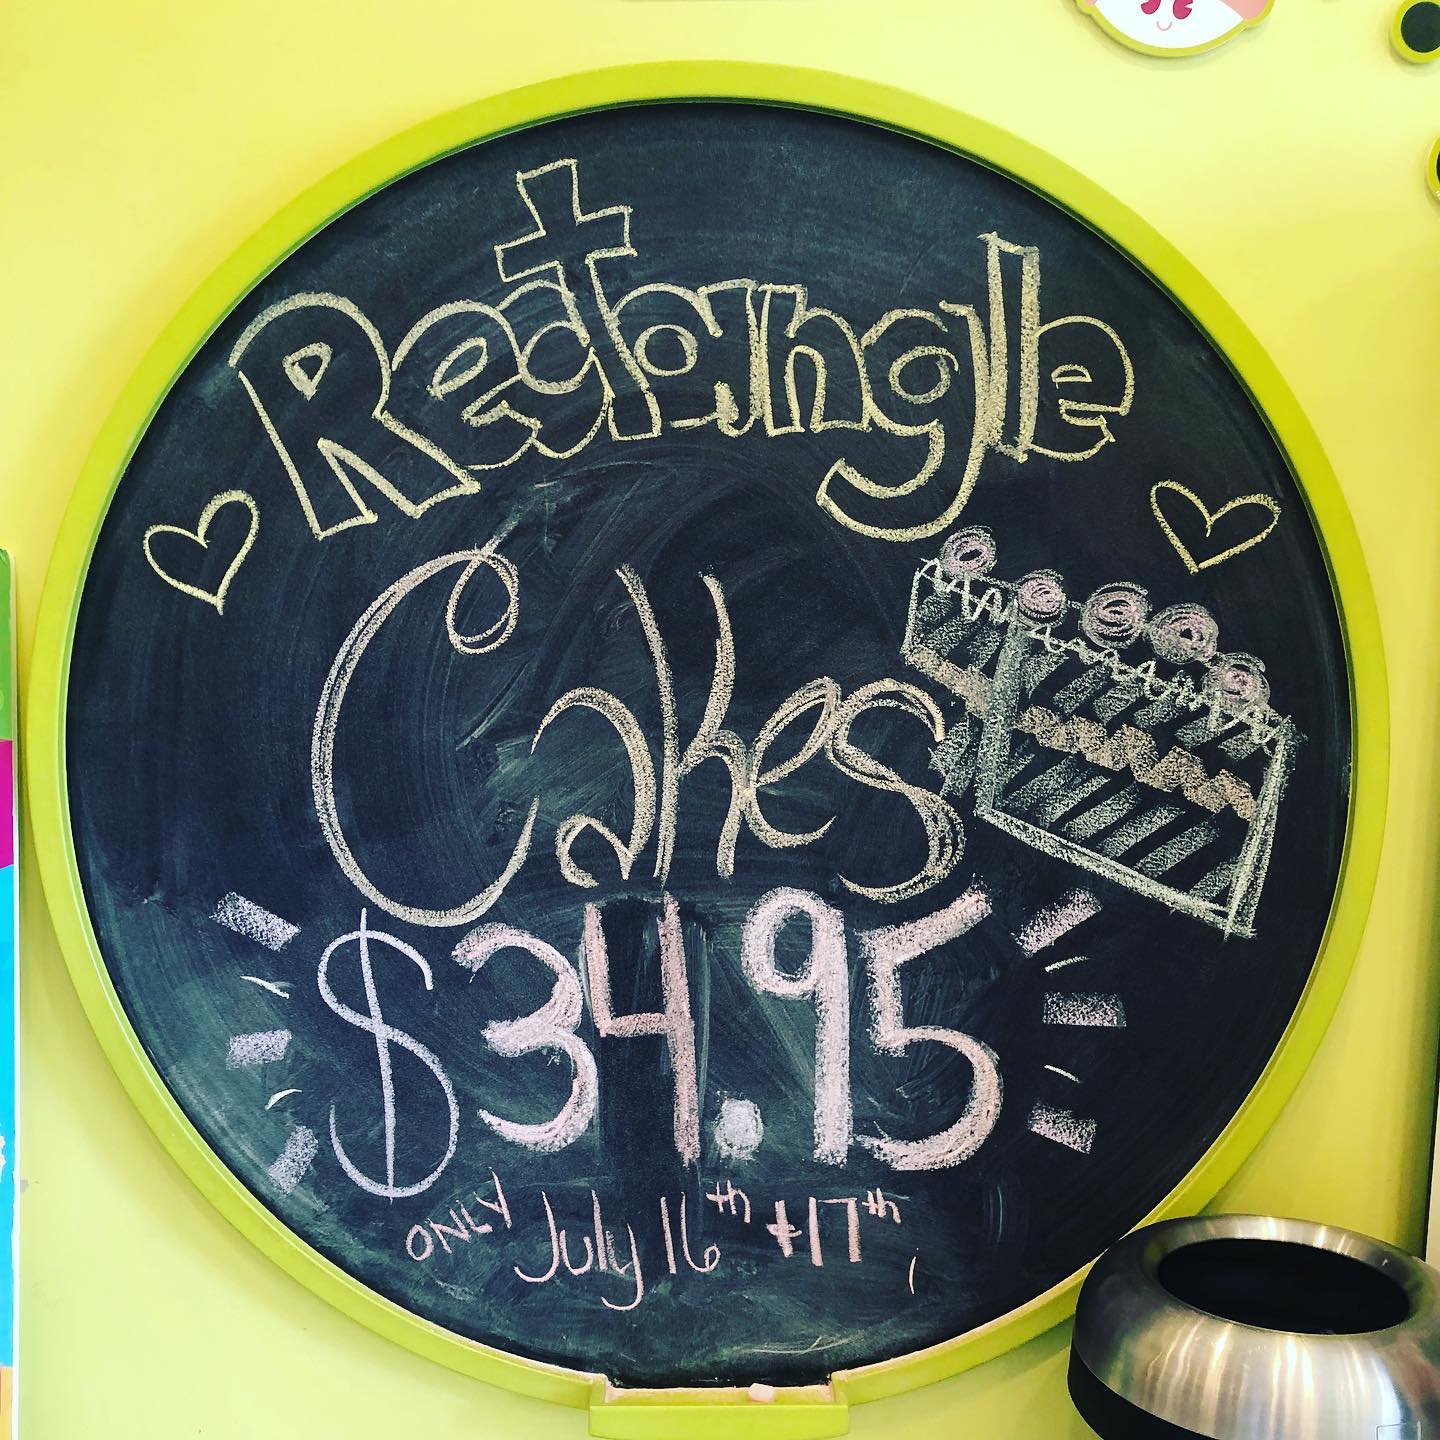 Rectangle
Cakes
$34.95
ONLY July 16th + 17th